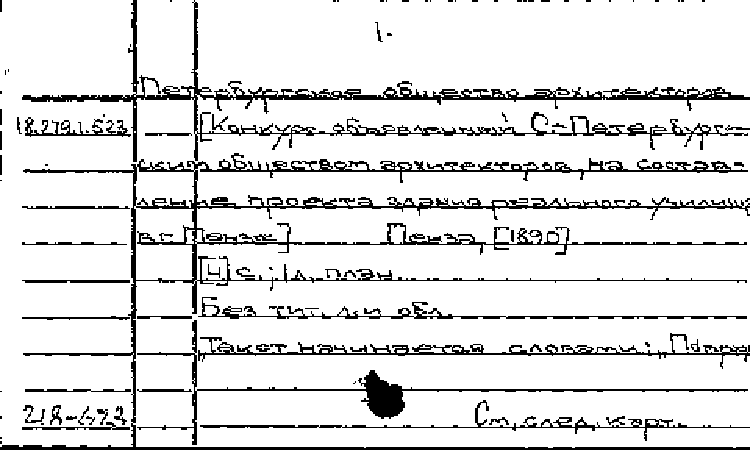 1.
Петербургское общество архитекторов
18.279.1.523 [Конкурс, объявленный С-Петербург-
ским обществом архитекторов, на состав-
ление проекта здания реального училищ
в г. Пензе] Пенза, [1890].
[4] с.; 1 л. план.
Без тит. л. и обл.
Текст начинается словами: „
218-623 См. след. карт.